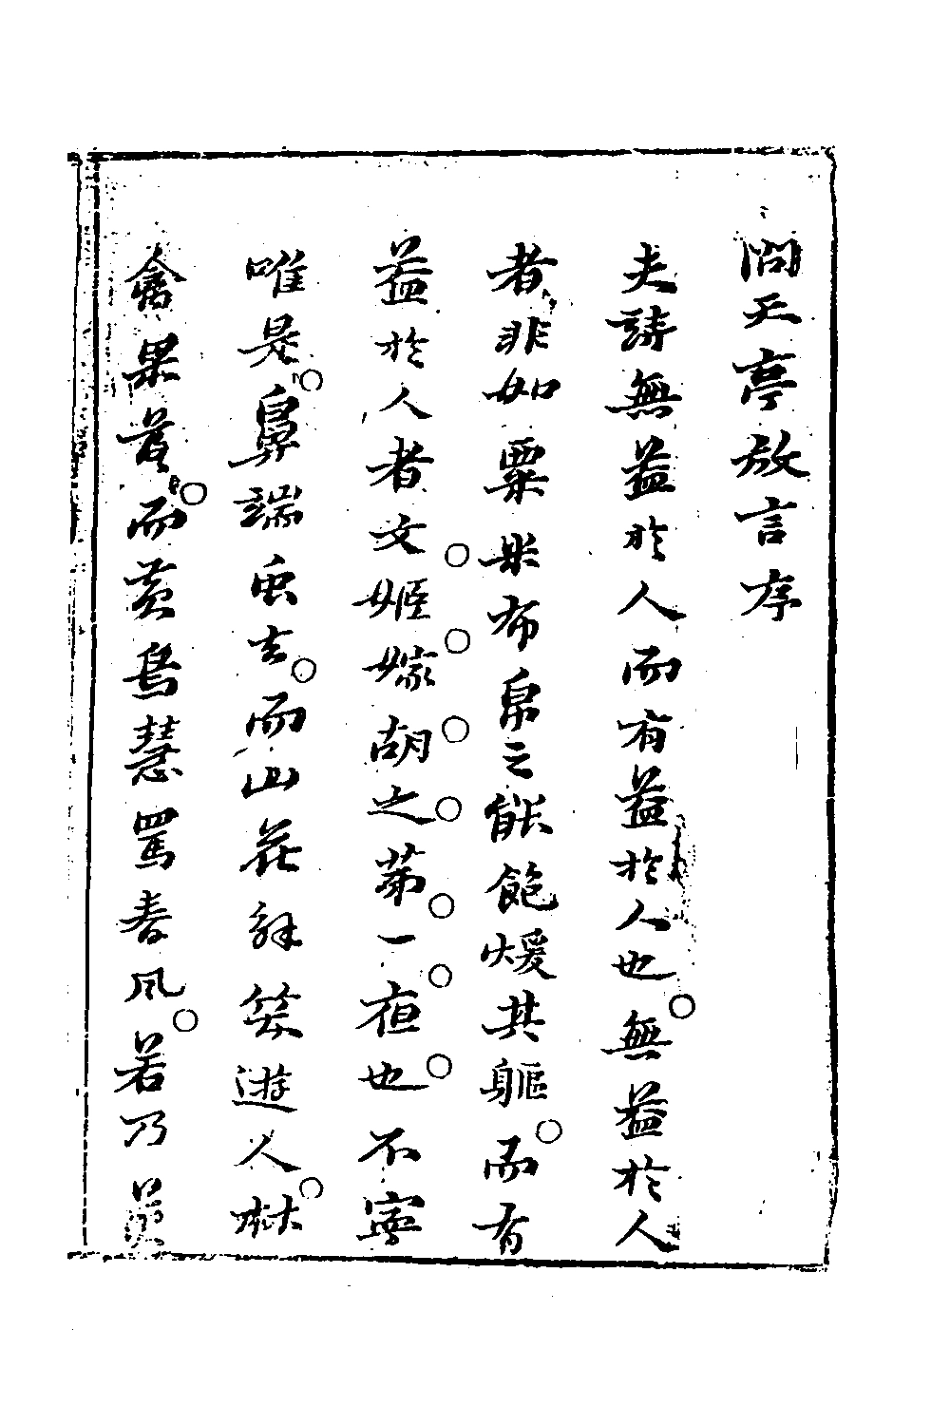 問天亭放言序
夫詩無益於人而有益於人也無益於人
者非如粟米布帛之能飽煖其軀而有
益於人者文姬嫁胡之第一夜也不寧
唯是鼻端虫去而山花解笑遊人林
禽果着而黃鳥慧罵春風若乃